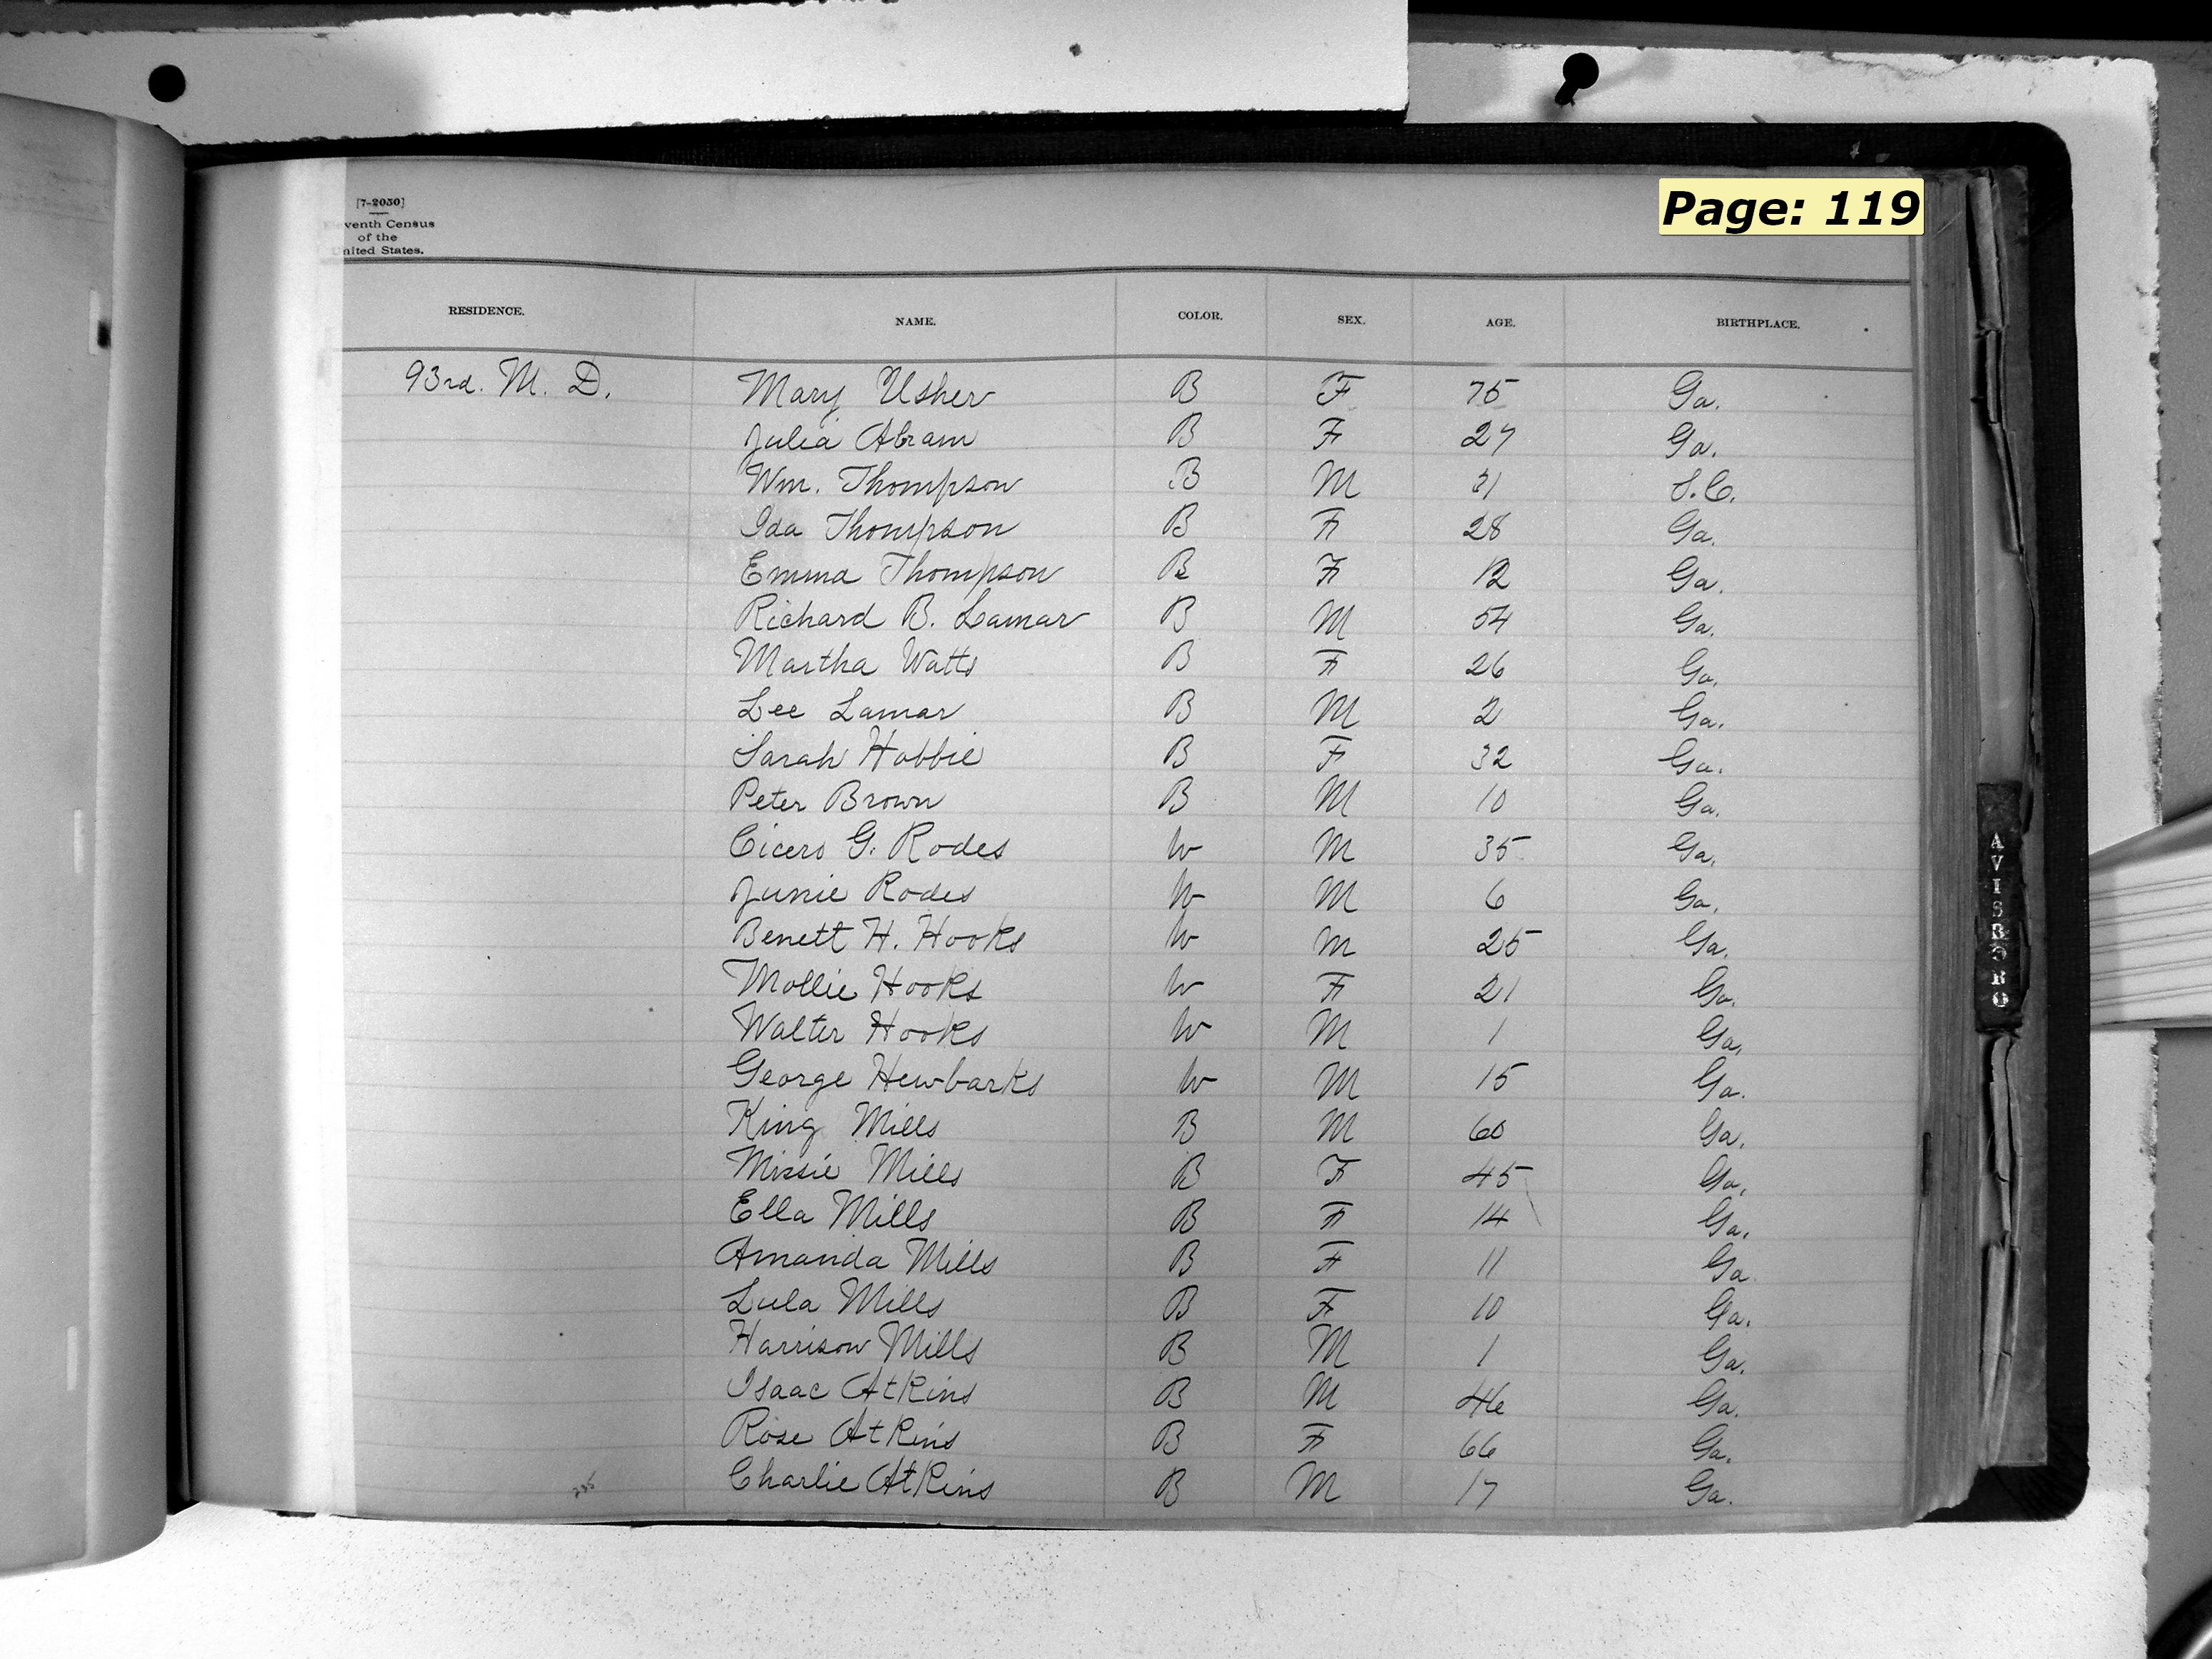 Page: 119
[7-2050]
Eleventh Census
of the
United States.
RESIDENCE. NAME. COLOR. SEX. AGE. BIRTHPLACE.
93rd. M. D. Mary Usher B F 75 Ga.
Julia Abram B F 27 Ga.
Wm. Thompson B M 31 S.C.
Ida Thompson B F 28 Ga.
Emma Thompson B F 12 Ga.
Richard B. Lamar B M 54 Ga.
Martha Watts B F 26 Ga.
Lee Lamar B M 2 Ga.
Sarah Hobbie B F 32 Ga.
Peter Brown B M 10 Ga.
Cicero G. Rodes W M 35 Ga.
Junie Rodes W M 6 Ga.
Benett H. Hooks W M 25 Ga.
Mollie Hooks W F 21 Ga.
Walter Hooks W M 1 Ga.
George Hewbarks W M 15 Ga.
King Mills B M 60 Ga.
Missie Mills B F 45 Ga.
Ella Mills B F 14 Ga.
Amanda Mills B F 11 Ga
Lula Mills B F 10 Ga.
Harrison Mills B M 1 Ga.
Isaac Atkins B M 46 Ga.
Rose Atkins B F 66 Ga.
Charlie Atkins B M 17 Ga.
AVISBORO